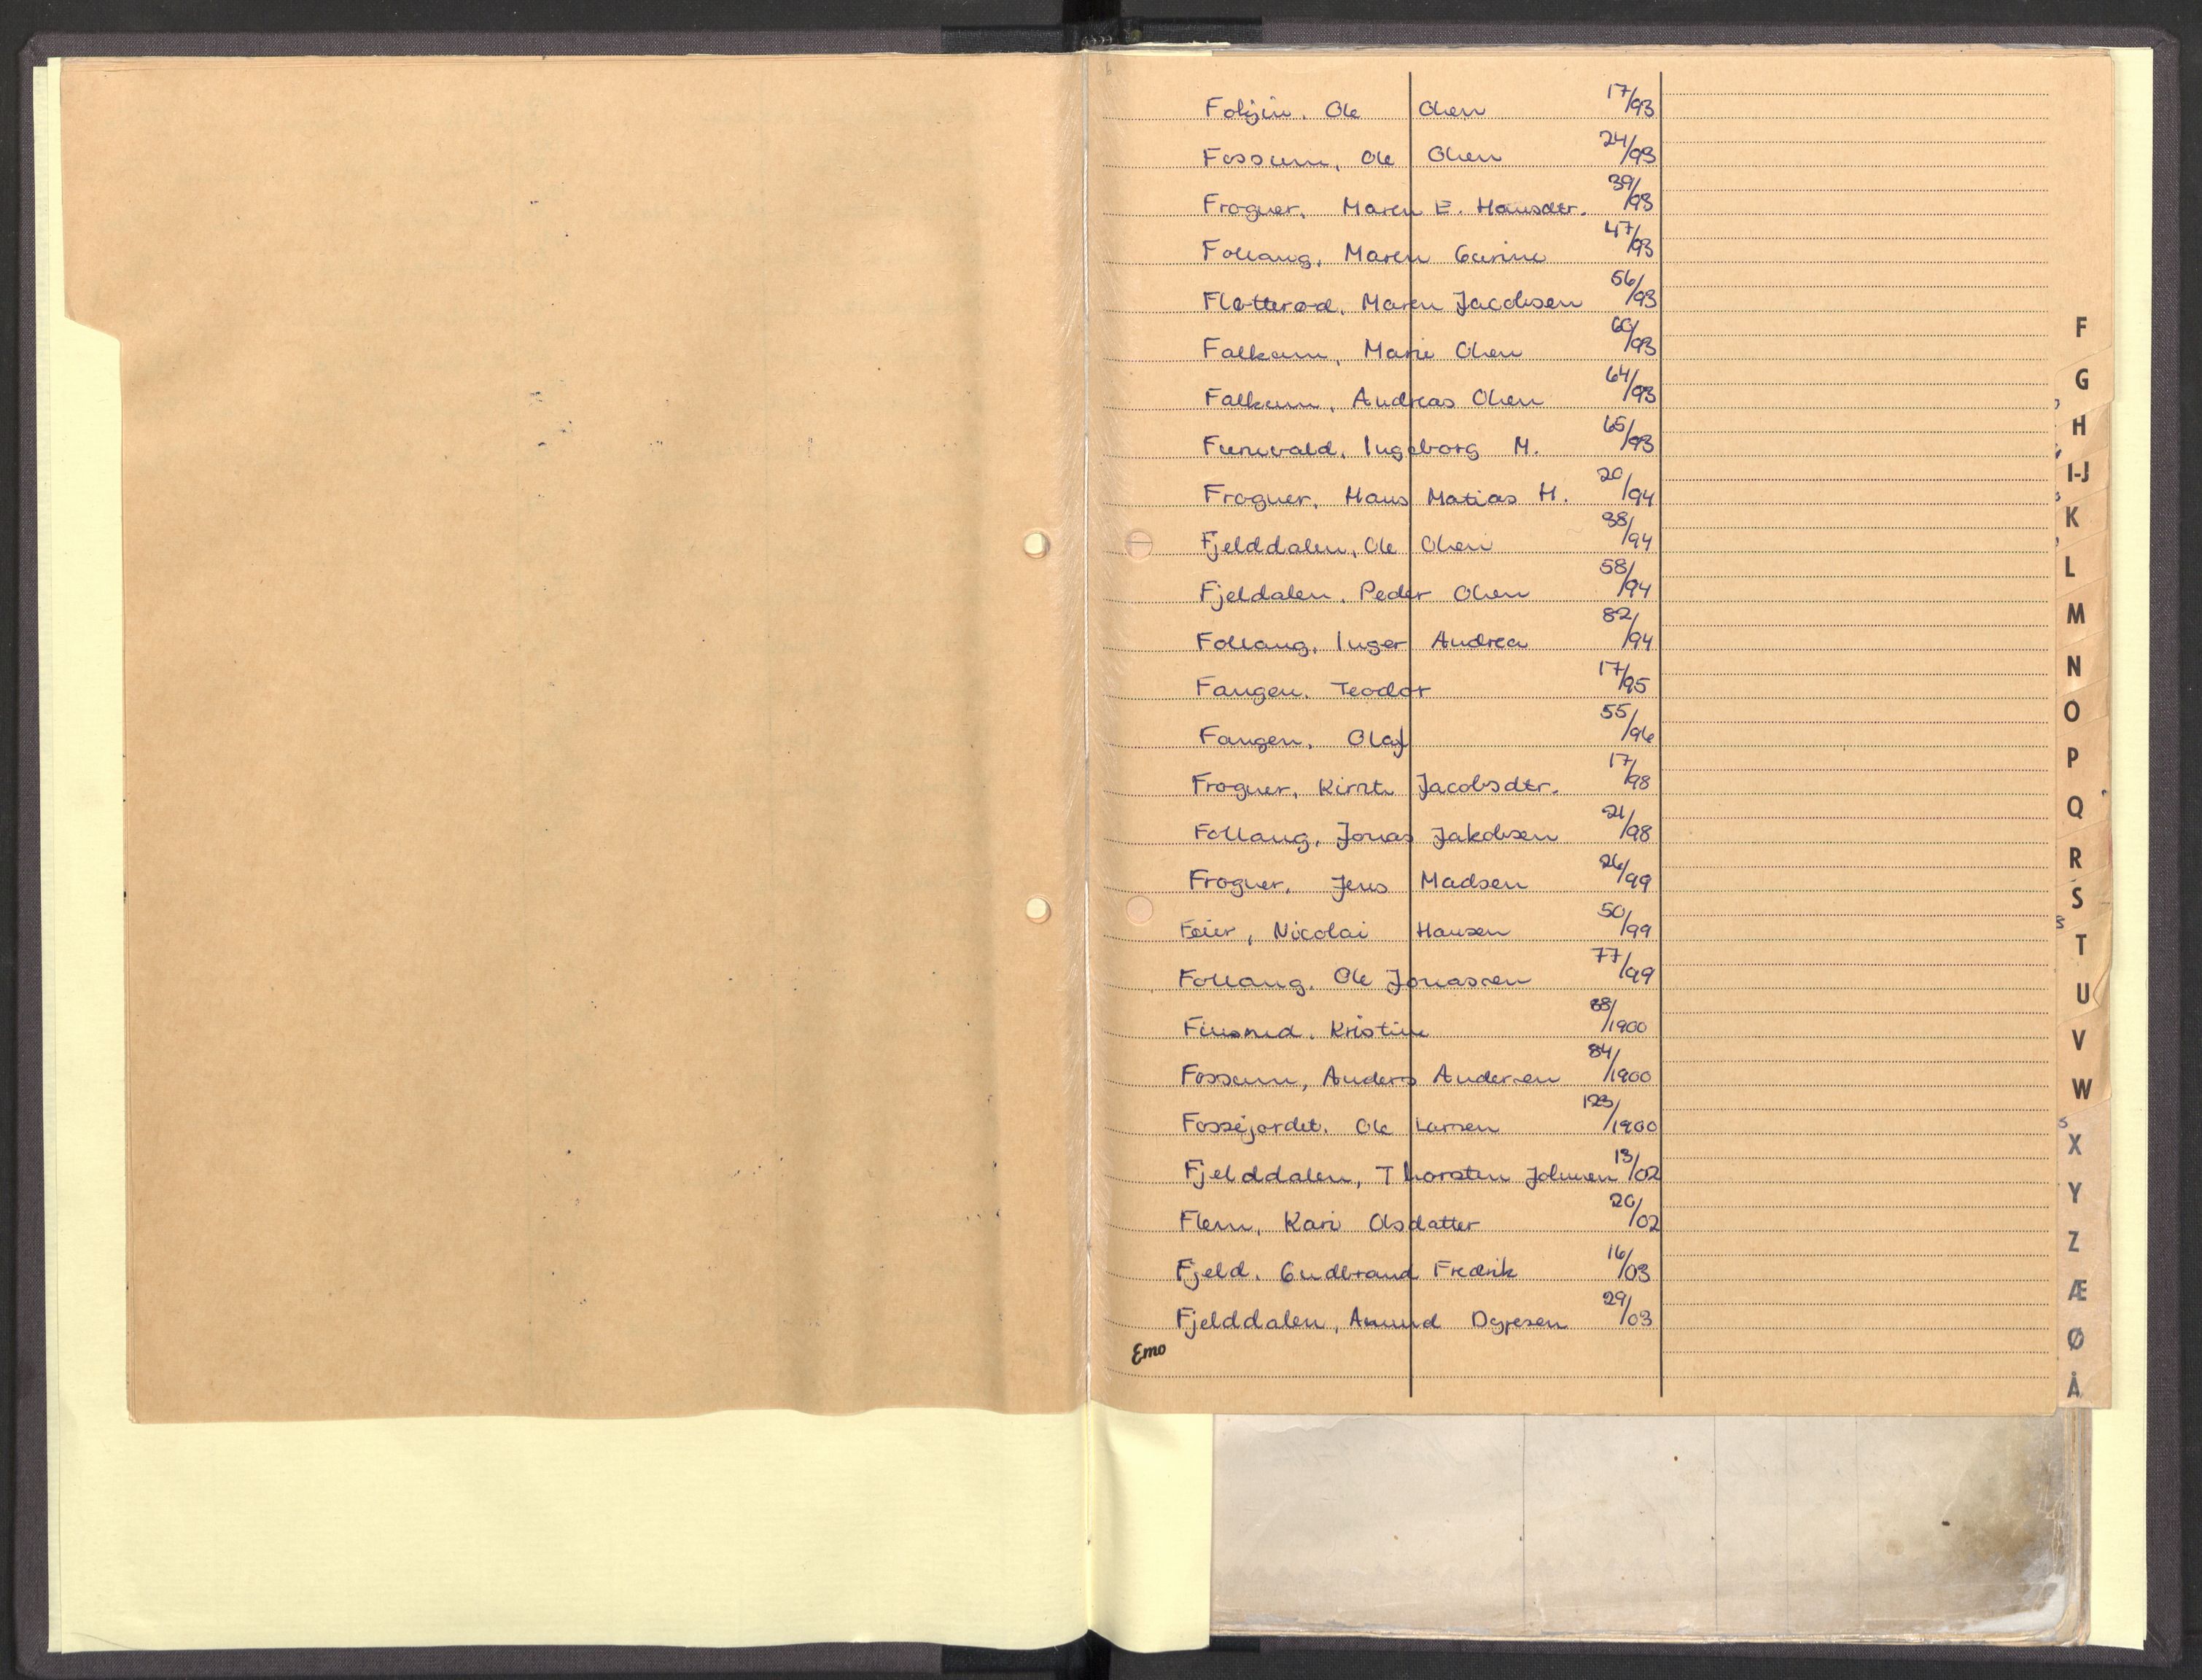 Folgin. Ole Olsen 17/93
Fossum, Ole Olsen 24/93
Frogner, Maren E. Hansdtr. 39/93
Follaug, Maren Gurine 47/93
Fløtterød, Maren Jacobsen 56/93
Falkum, Marie Olsen 60/93
Falkum, Andreas Olsen 64/93
Furuvald, Ingeborg M. 65/93
Frogner, Hans Matias H. 20/94
Fjelddalen, Ole Olsen 38/94
Fjeldalen, Peder Olsen 58/94
Follaug, Inger Andrea 82/94
Fangen, Teodor 17/95
Fangen, Olaf 55/96
Frogner, Kirsti Jacobsdtr. 17/98
Follaug, Jonas Jakobsen 21/98
Frogner, Jens Madsen 26/99
Feier, Nicolai Hansen 50/99
Follaug, Ole Jonassen 77/99
Finsrud, Kristine 38/1900
Fossum, Anders Andersen 84/1900
Fossejordet, Ole Larsen 123/1900
Fjelddalen, Thorsten Johnsen 13/02
Flem, Kari Olsdatter 20/02
Fjeld, Gudbrand Fredrik 16/03
Fjelddalen, Amund 29/03
Emo
F
G
H
I-J
K
L
M
N
O
P
Q
R
S
T
U
V
W
X
Y
Z
Æ
Ø
Å